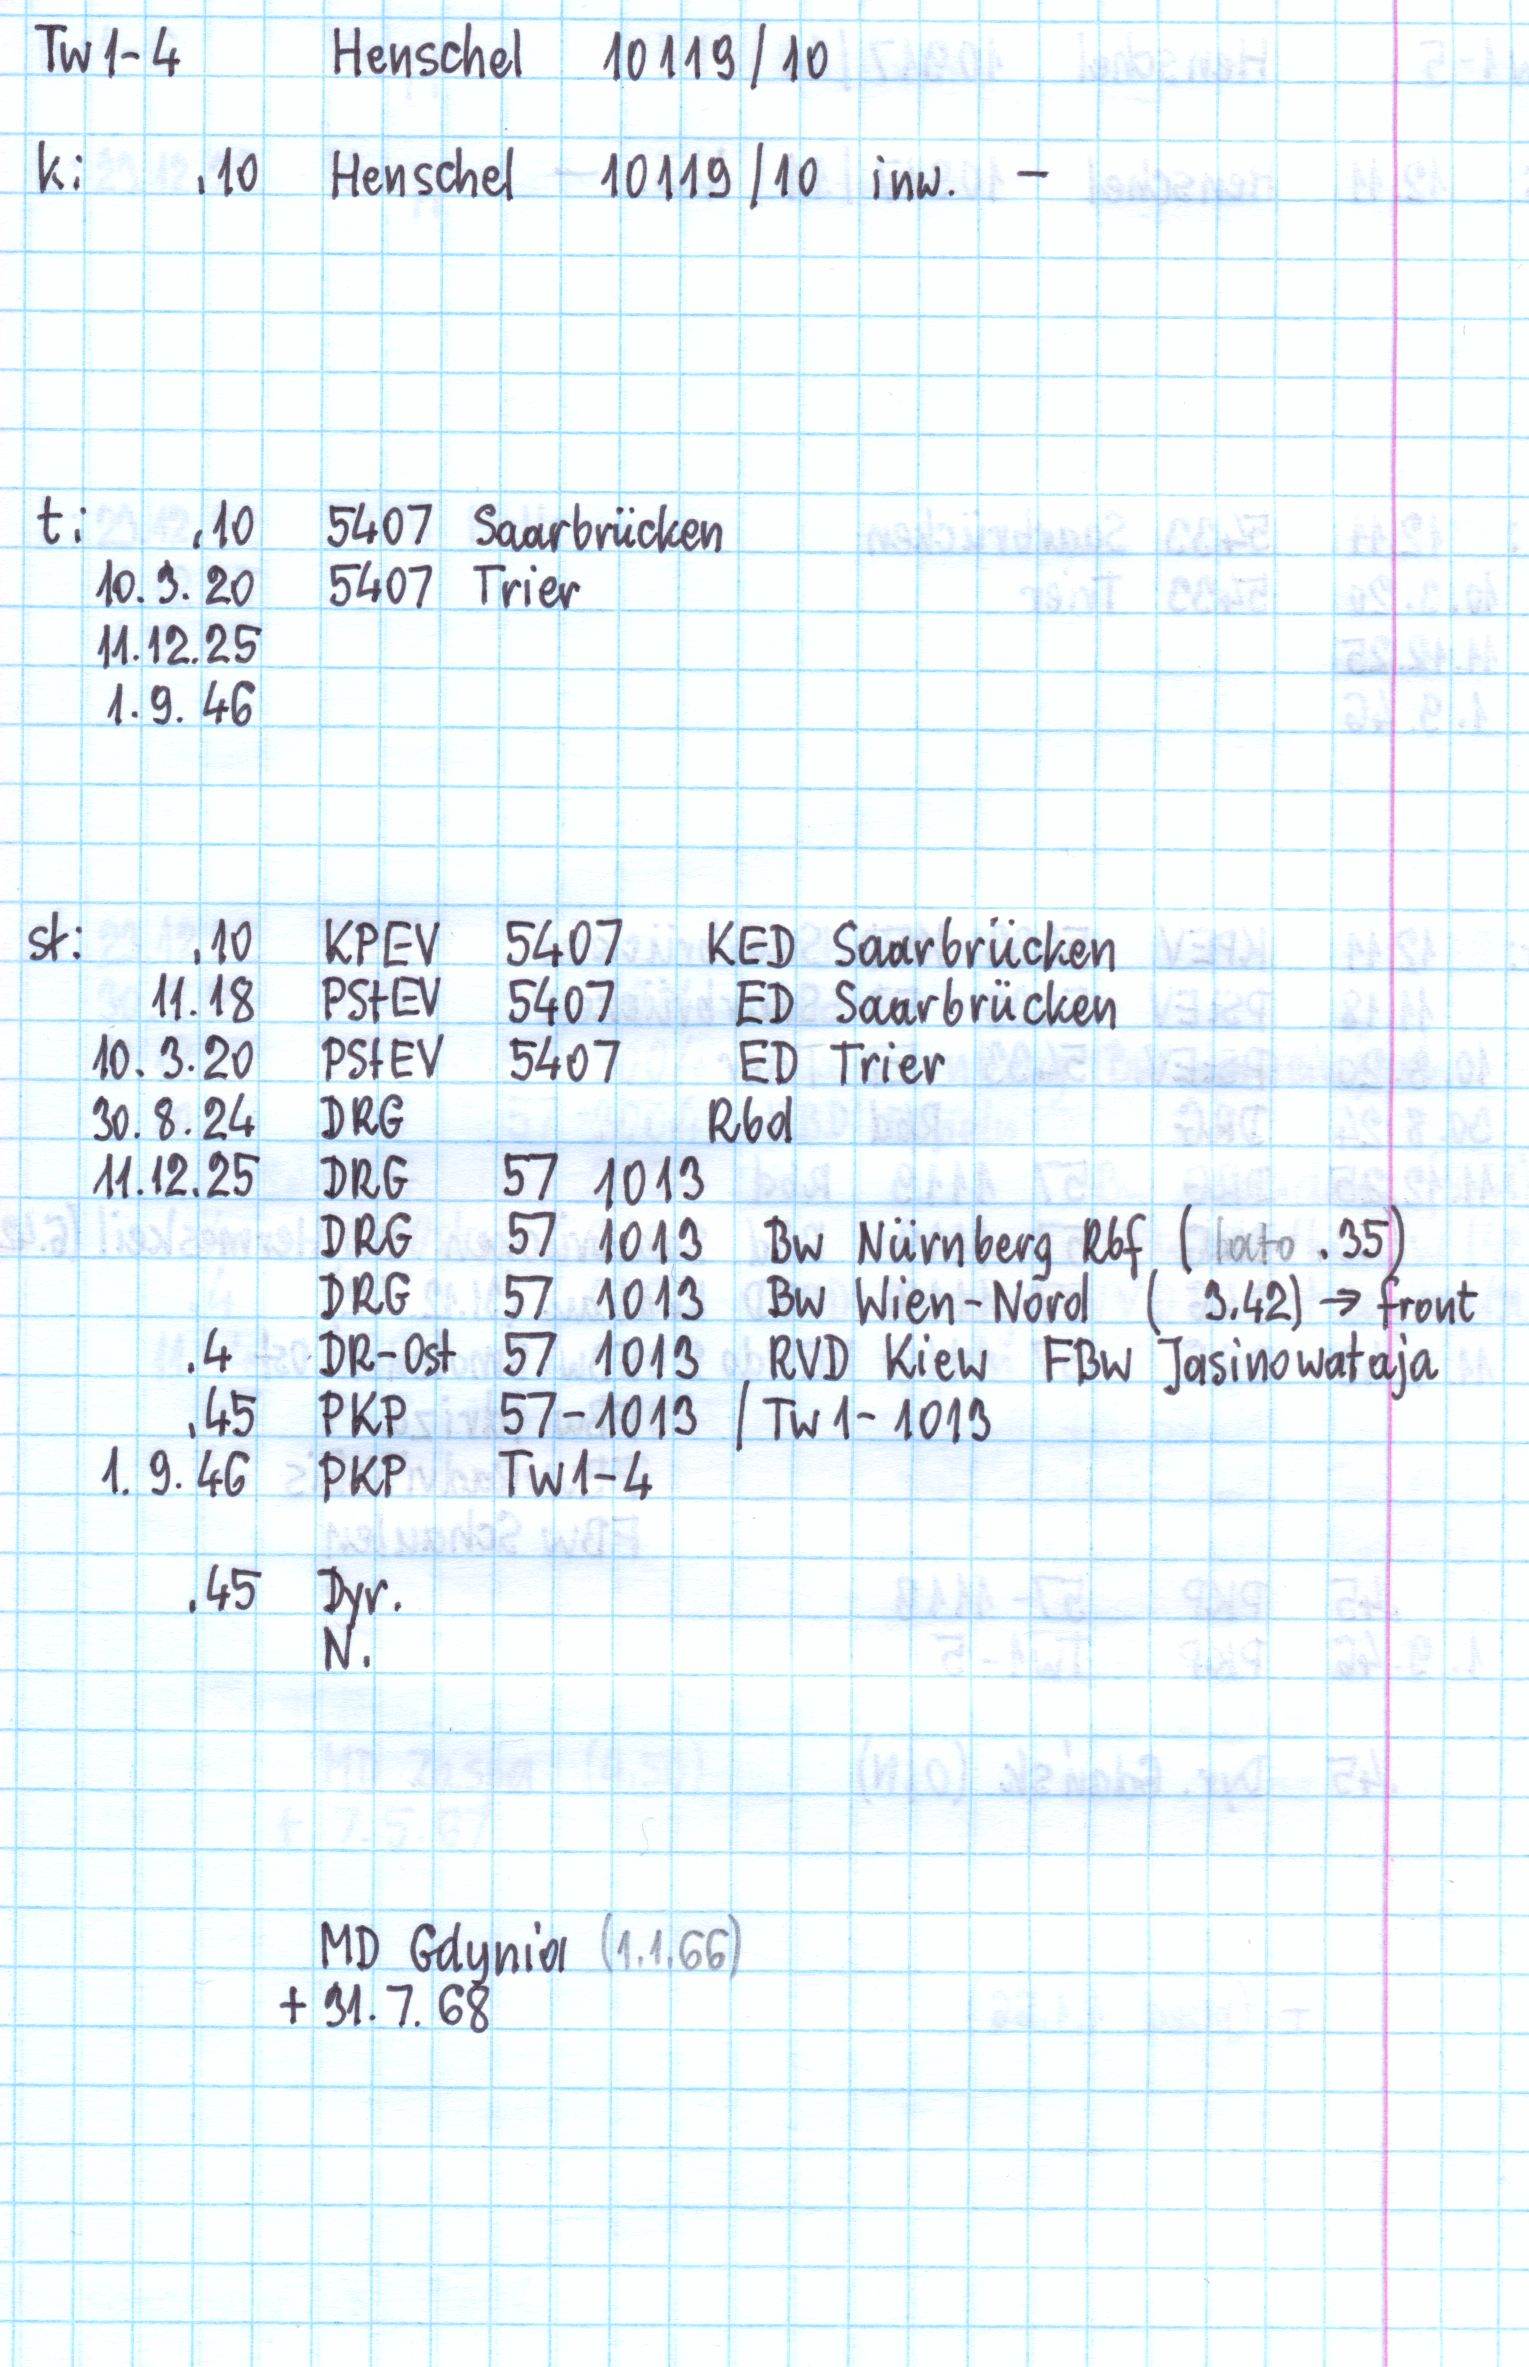 Tw1-4 Henschel 10119/10
k: .10 Henschel 10119/10 inw. -
t: .10 5407 Saarbrücken
10.3.20 5407 Trier
11.12.25
1.9.46
st: .10 KPEV 5407 KED Saarbrücken
11.18 PStEV 5407 ED Saarbrücken
10.3.20 PStEV 5407 ED Trier
30.8.24 DRG Rbd
11.12.25 DRG 57 1013
DRG 57 1013 Bw Nürnberg Rbf (lato .35)
DRG 57 1013 Bw Wien-Nord ( 3.42) → front
.4 DR-Ost 57 1013 RVD Kiew FBw Jasinowataja
.45 PKP 57-1013 / Tw1-1013
1.9.46 PKP Tw1-4
.45 Dyr.
N.
MD Gdynia (1.1.66)
+ 31.7.68